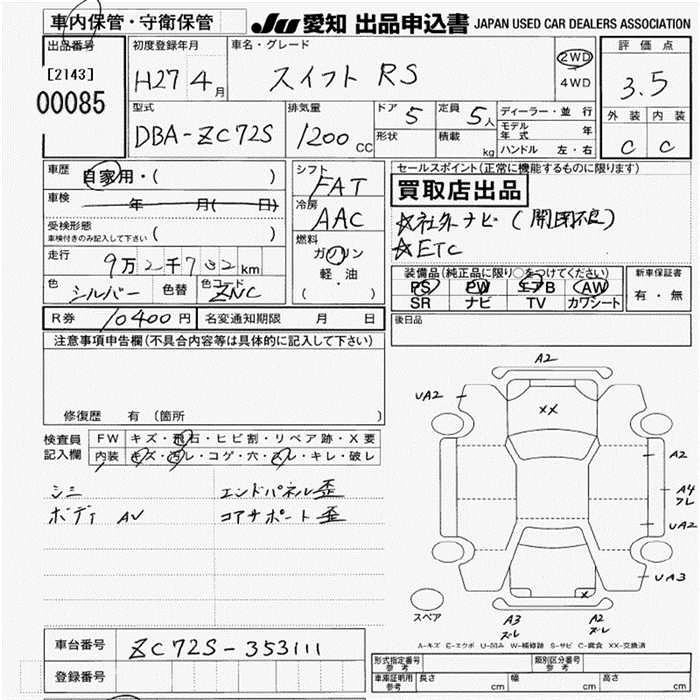 車内保管・守衛保管
JU 愛知 出品申込書 JAPAN USED CAR DEALERS ASSOCIATION
出品番号
[2143]
00085
初度登録年月
H27 4月
車名・グレード
スイフト RS
2WD
4WD
評価点
3.5
外装 内装
C C
型式
DBA-ZC72S
排気量
1200 CC
ドア 5
形状
定員 5人
積載 kg
ディーラー・並行
モデル年式 年
ハンドル 左・右
車歴 自家用・( )
車検 年 月( 日)
受検形態
車検付きのみ記入して下さい ( )
走行
km
色 シルバー 色替 色コード ZNC
シフト
FAT
冷房
AAC
燃料
ガソリン
軽・油
( )
セールスポイント(正常に機能するものに限ります)
買取店出品
☆社外ナビ(開閉不良)
☆ETC
装備品(純正品に限り○をつけてください)
PS PW エアB AW
SR ナビ TV カワシート
新車保証書
有・無
R券 10400円 名変通知期限 月 日
後日品
注意事項申告欄(不具合内容等は具体的に記入して下さい)
修復歴 有 (箇所 )
検査員
記入欄
FW キズ・飛石・ヒビ割・リペア跡・X要
内装 キズ・汚レ・コゲ・穴・スレ・キレ・破レ
シミ エンドパネル歪
ボディ AV コアサポート歪
A2
UA2
XX
A2
A4
クレ
UA2
UA3
X
スペア
A3
ズレ
A2
ズレ
A-キズ E-エクボ U-凹み W-補修跡 S-サビ C-腐食 XX-交換済
車台番号 ZC72S-353111
登録番号
形式指定番号
参考
類別区分番号
参考
車庫証明用
参考
長さ cm 幅 cm 高さ cm